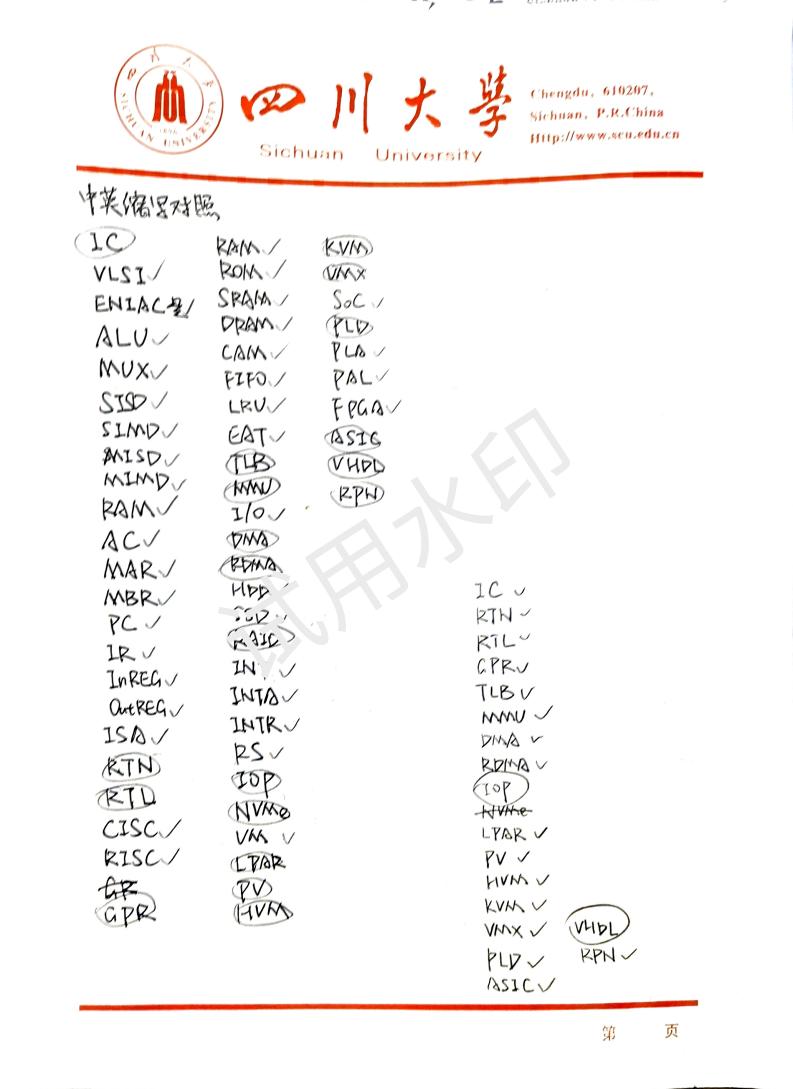 四川大學
Sichuan University
Chengdu, 610207,
Sichuan, P.R.China
Http://www.scu.edu.cn
四川大学
SICHUAN UNIVERSITY
1896
中英缩写对照
IC
VLSI ✓
ENIAC ✓
ALU ✓
MUX ✓
SISD ✓
SIMD ✓
MISD ✓
MIMD ✓
RAM ✓
AC ✓
MAR ✓
MBR ✓
PC ✓
IR ✓
InREG ✓
OutREG ✓
ISA ✓
RTN
RTL
CISC ✓
RISC ✓
GR
GPR
RAM ✓
ROM ✓
SRAM ✓
DRAM ✓
CAM ✓
FIFO ✓
LRU ✓
EAT ✓
TLB
MMU
I/O ✓
DMA
RDMA
HDD ✓
SSD ✓
RAID
IN ✓
INTA ✓
INTR ✓
RS ✓
IOP
NVMe
VM ✓
LPAR
PV
HVM
KVM
VMX
SoC ✓
PLD
PLA ✓
PAL ✓
FPGA ✓
ASIC
VHDL
RPN
IC ✓
RTN ✓
RTL ✓
GPR ✓
TLB ✓
MMU ✓
DMA ✓
RDMA ✓
IOP
NVMe
LPAR ✓
PV ✓
HVM ✓
KVM ✓
VMX ✓
PLD ✓
ASIC ✓
VHDL
RPN ✓
第 页
试用水印